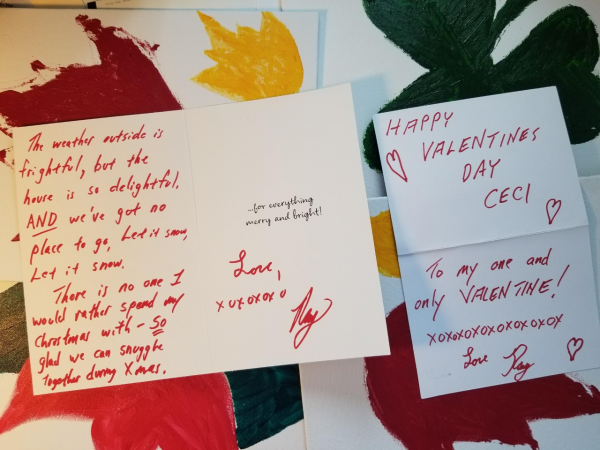 The weather outside is
frightful, but the
house is so delightful.
AND we've got no
place to go, Let it snow,
Let it snow.
There is no one I
would rather spend my
Christmas with - So
glad we can snuggle
together during Xmas.
...for everything
merry and bright!
Love,
xoxoxoxo
Ray
HAPPY
VALENTINES
DAY
CECI
To my one and
only VALENTINE!
xoxoxoxoxoxoxoxox
Love Ray